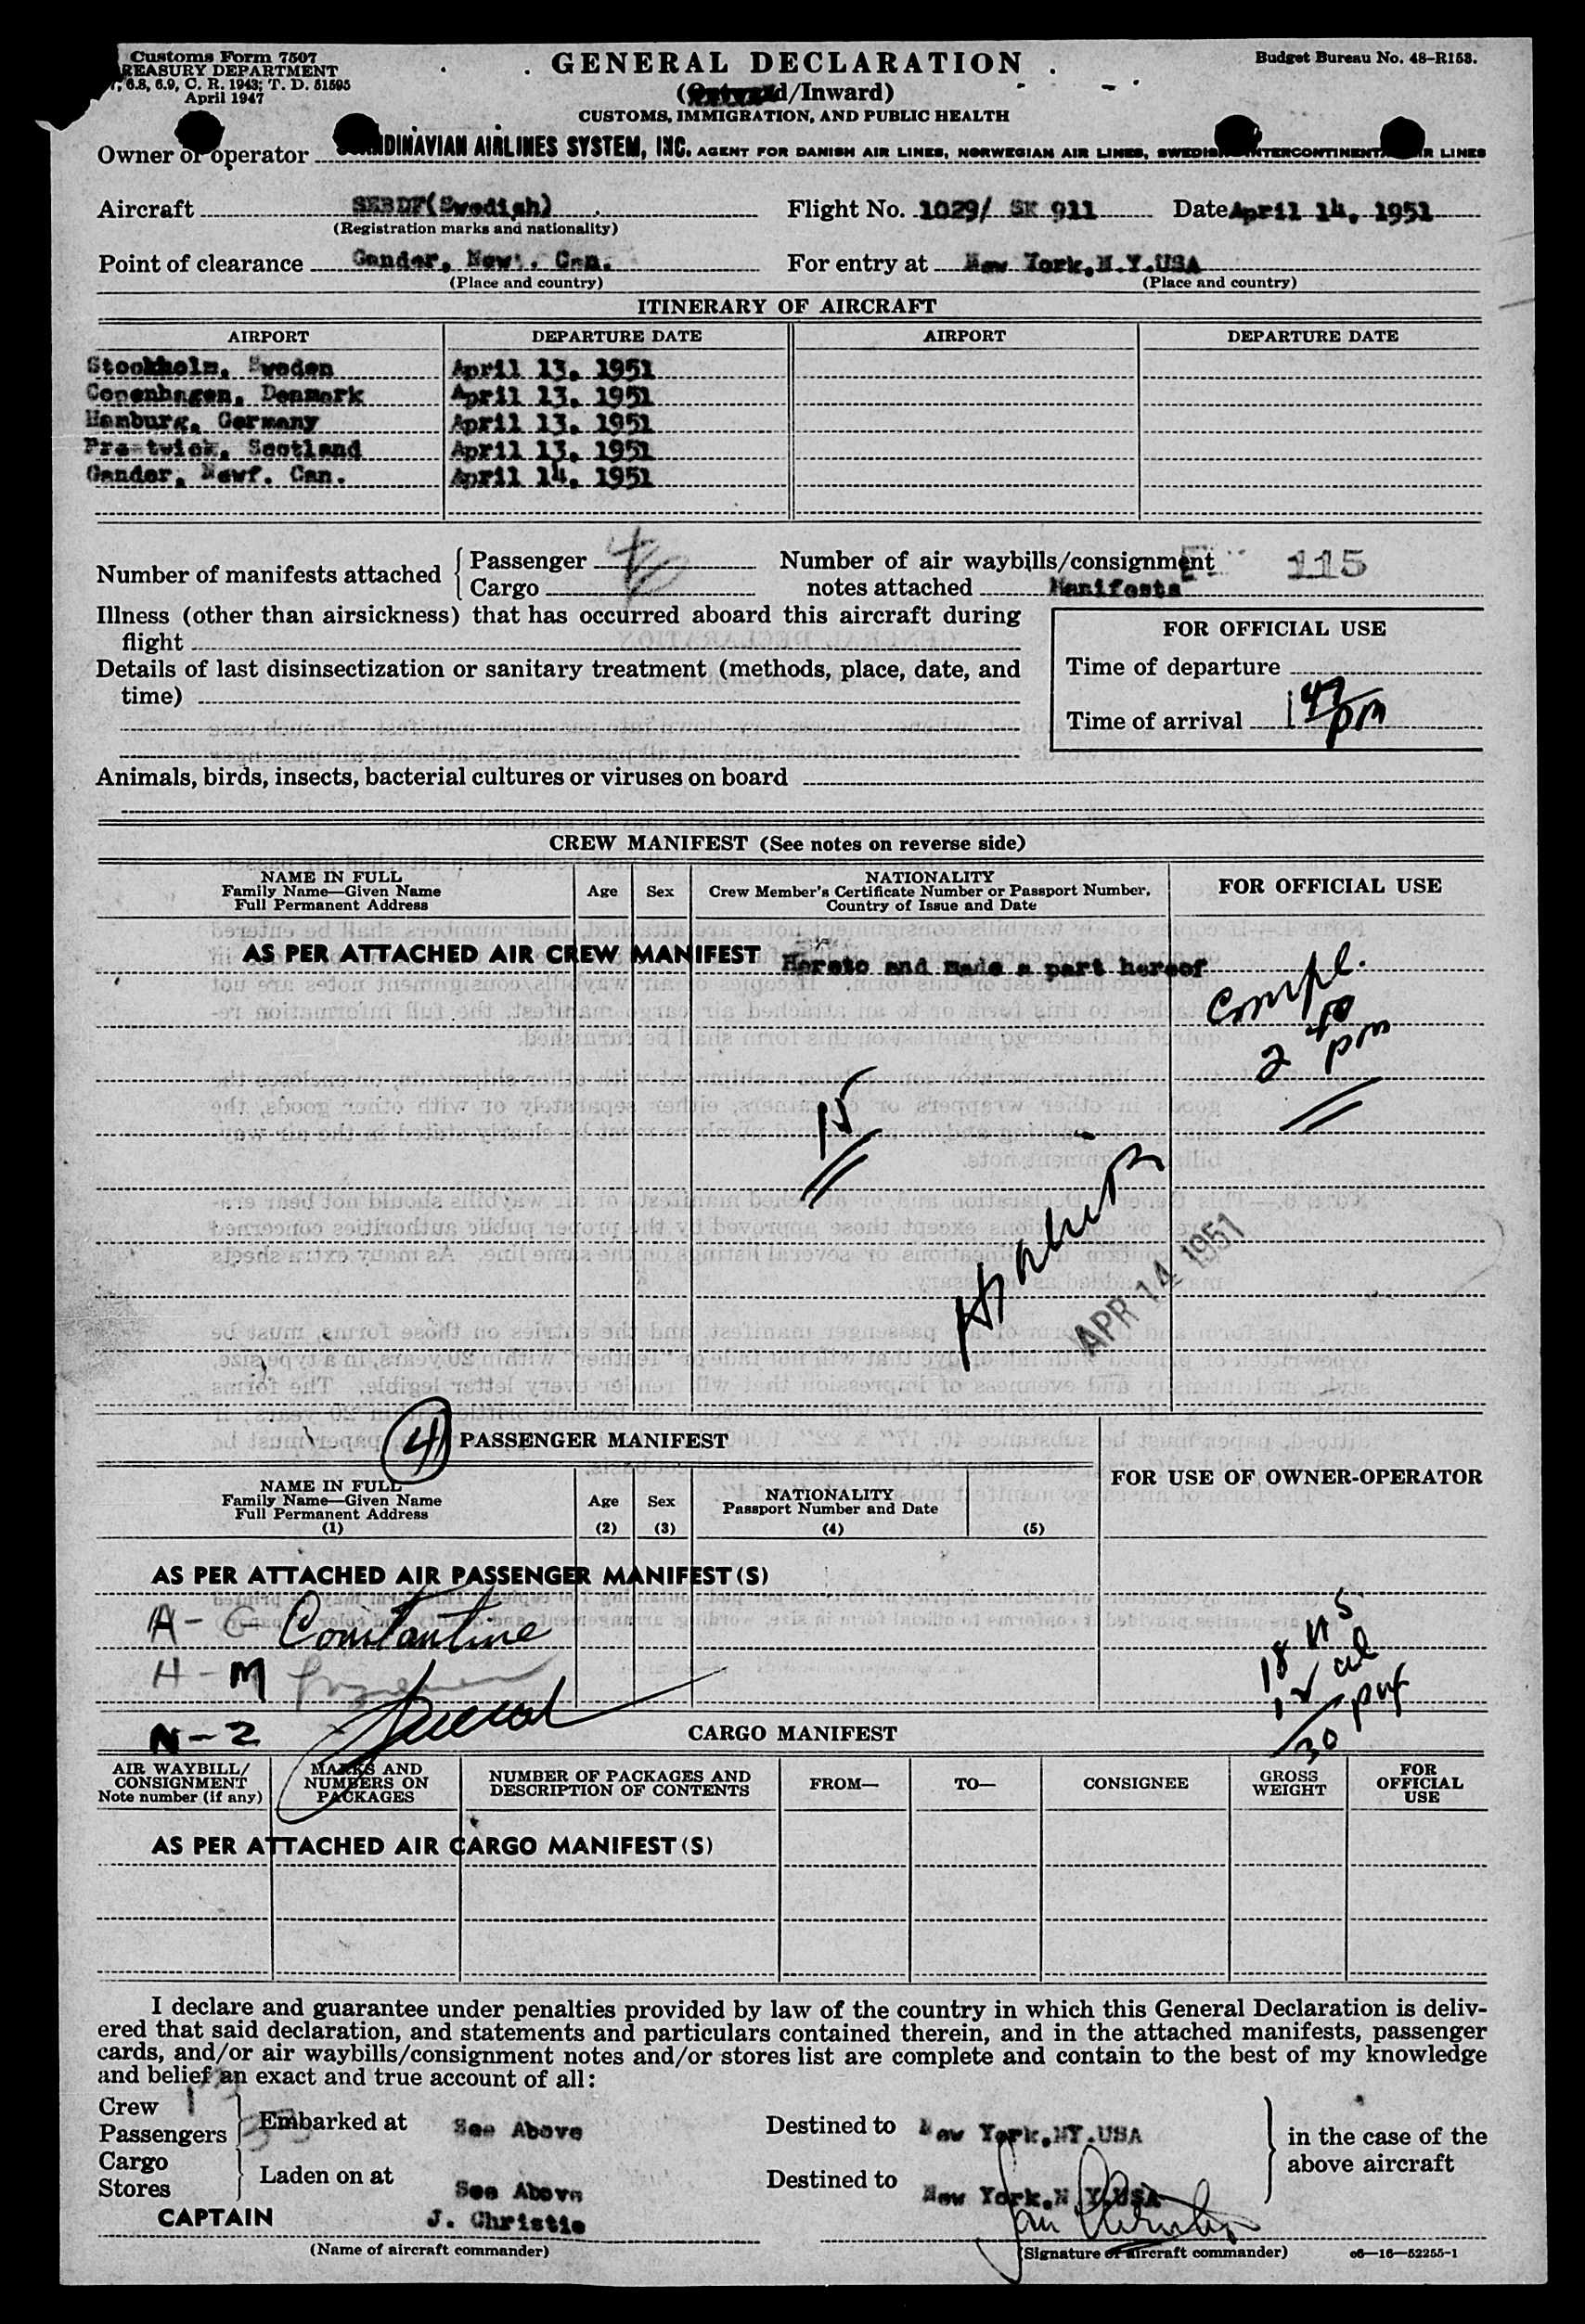 Customs Form 7507
REASURY DEPARTMENT
6.8, 6.9, C. R. 1943; T. D. 51595
April 1947
GENERAL DECLARATION
/Inward)
CUSTOMS, IMMIGRATION, AND PUBLIC HEALTH
Budget Bureau No. 48-R153.
Owner or operator DINAVIAN AIRLINES SYSTEM, INC. AGENT FOR DANISH AIR LINES, NORWEGIAN AIR LINES, SWEDIS NTERCONTINENT R LINES
Aircraft SEBDF(Swedish) Flight No. 1029/ SK 911 Date April 14, 1951
(Registration marks and nationality)
Point of clearance Gander, New. Can. For entry at New York, N.Y.USA
(Place and country) (Place and country)
ITINERARY OF AIRCRAFT
AIRPORT DEPARTURE DATE AIRPORT DEPARTURE DATE
Stockholm, Sweden April 13, 1951
Copenhagen, Denmark April 13, 1951
Hamburg, Germany April 13, 1951
Prestwick, Scotland April 13, 1951
Gander, Newf. Can. April 14, 1951
Number of manifests attached { Passenger 4 Number of air waybills/consignment 115
Cargo notes attached Manifests
Illness (other than airsickness) that has occurred aboard this aircraft during
flight
Details of last disinsectization or sanitary treatment (methods, place, date, and
time)
FOR OFFICIAL USE
Time of departure
Time of arrival 1 47 pm
Animals, birds, insects, bacterial cultures or viruses on board
CREW MANIFEST (See notes on reverse side)
NAME IN FULL
Family Name—Given Name
Full Permanent Address
Age Sex
NATIONALITY
Crew Member's Certificate Number or Passport Number,
Country of Issue and Date
FOR OFFICIAL USE
AS PER ATTACHED AIR CREW MANIFEST Hereto and made a part hereof
Compl.
2 40 pm
15
APR 14 1951
4 PASSENGER MANIFEST
NAME IN FULL
Family Name—Given Name
Full Permanent Address
(1)
Age
(2)
Sex
(3)
NATIONALITY
Passport Number and Date
(4) (5)
FOR USE OF OWNER-OPERATOR
AS PER ATTACHED AIR PASSENGER MANIFEST(S)
A - G Constantine
H - M
N - Z
18 US
12 al
30 psg
CARGO MANIFEST
AIR WAYBILL/
CONSIGNMENT
Note number (if any)
MARKS AND
NUMBERS ON
PACKAGES
NUMBER OF PACKAGES AND
DESCRIPTION OF CONTENTS
FROM—
TO—
CONSIGNEE
GROSS
WEIGHT
FOR
OFFICIAL
USE
AS PER ATTACHED AIR CARGO MANIFEST(S)
I declare and guarantee under penalties provided by law of the country in which this General Declaration is deliv-
ered that said declaration, and statements and particulars contained therein, and in the attached manifests, passenger
cards, and/or air waybills/consignment notes and/or stores list are complete and contain to the best of my knowledge
and belief an exact and true account of all:
Crew
Passengers Embarked at See Above Destined to New York,NY.USA in the case of the
Cargo above aircraft
Stores Laden on at See Above Destined to New York,N.Y.USA
CAPTAIN J. Christie
(Name of aircraft commander) (Signature of aircraft commander) c6—16—52255-1